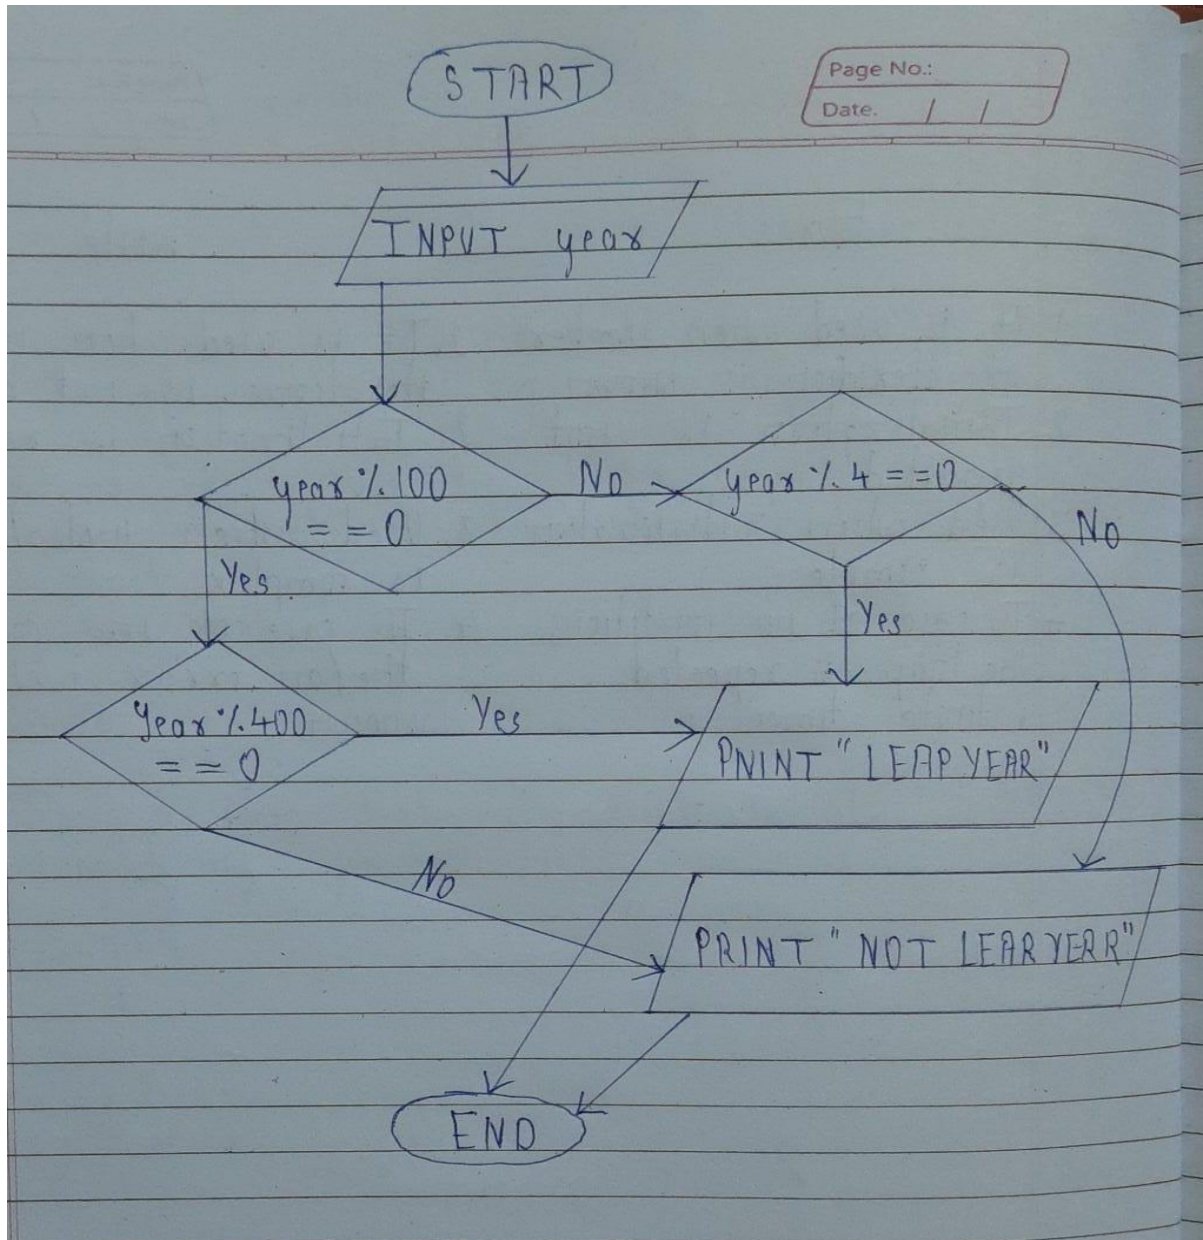 START
Page No.:
Date. / /
INPUT year
year % 100
= = 0
No
year % 4 = = 0
No
Yes
Yes
Year % 400
= = 0
Yes
PNINT "LEAP YEAR"
No
PRINT "NOT LEAR YERR"
END